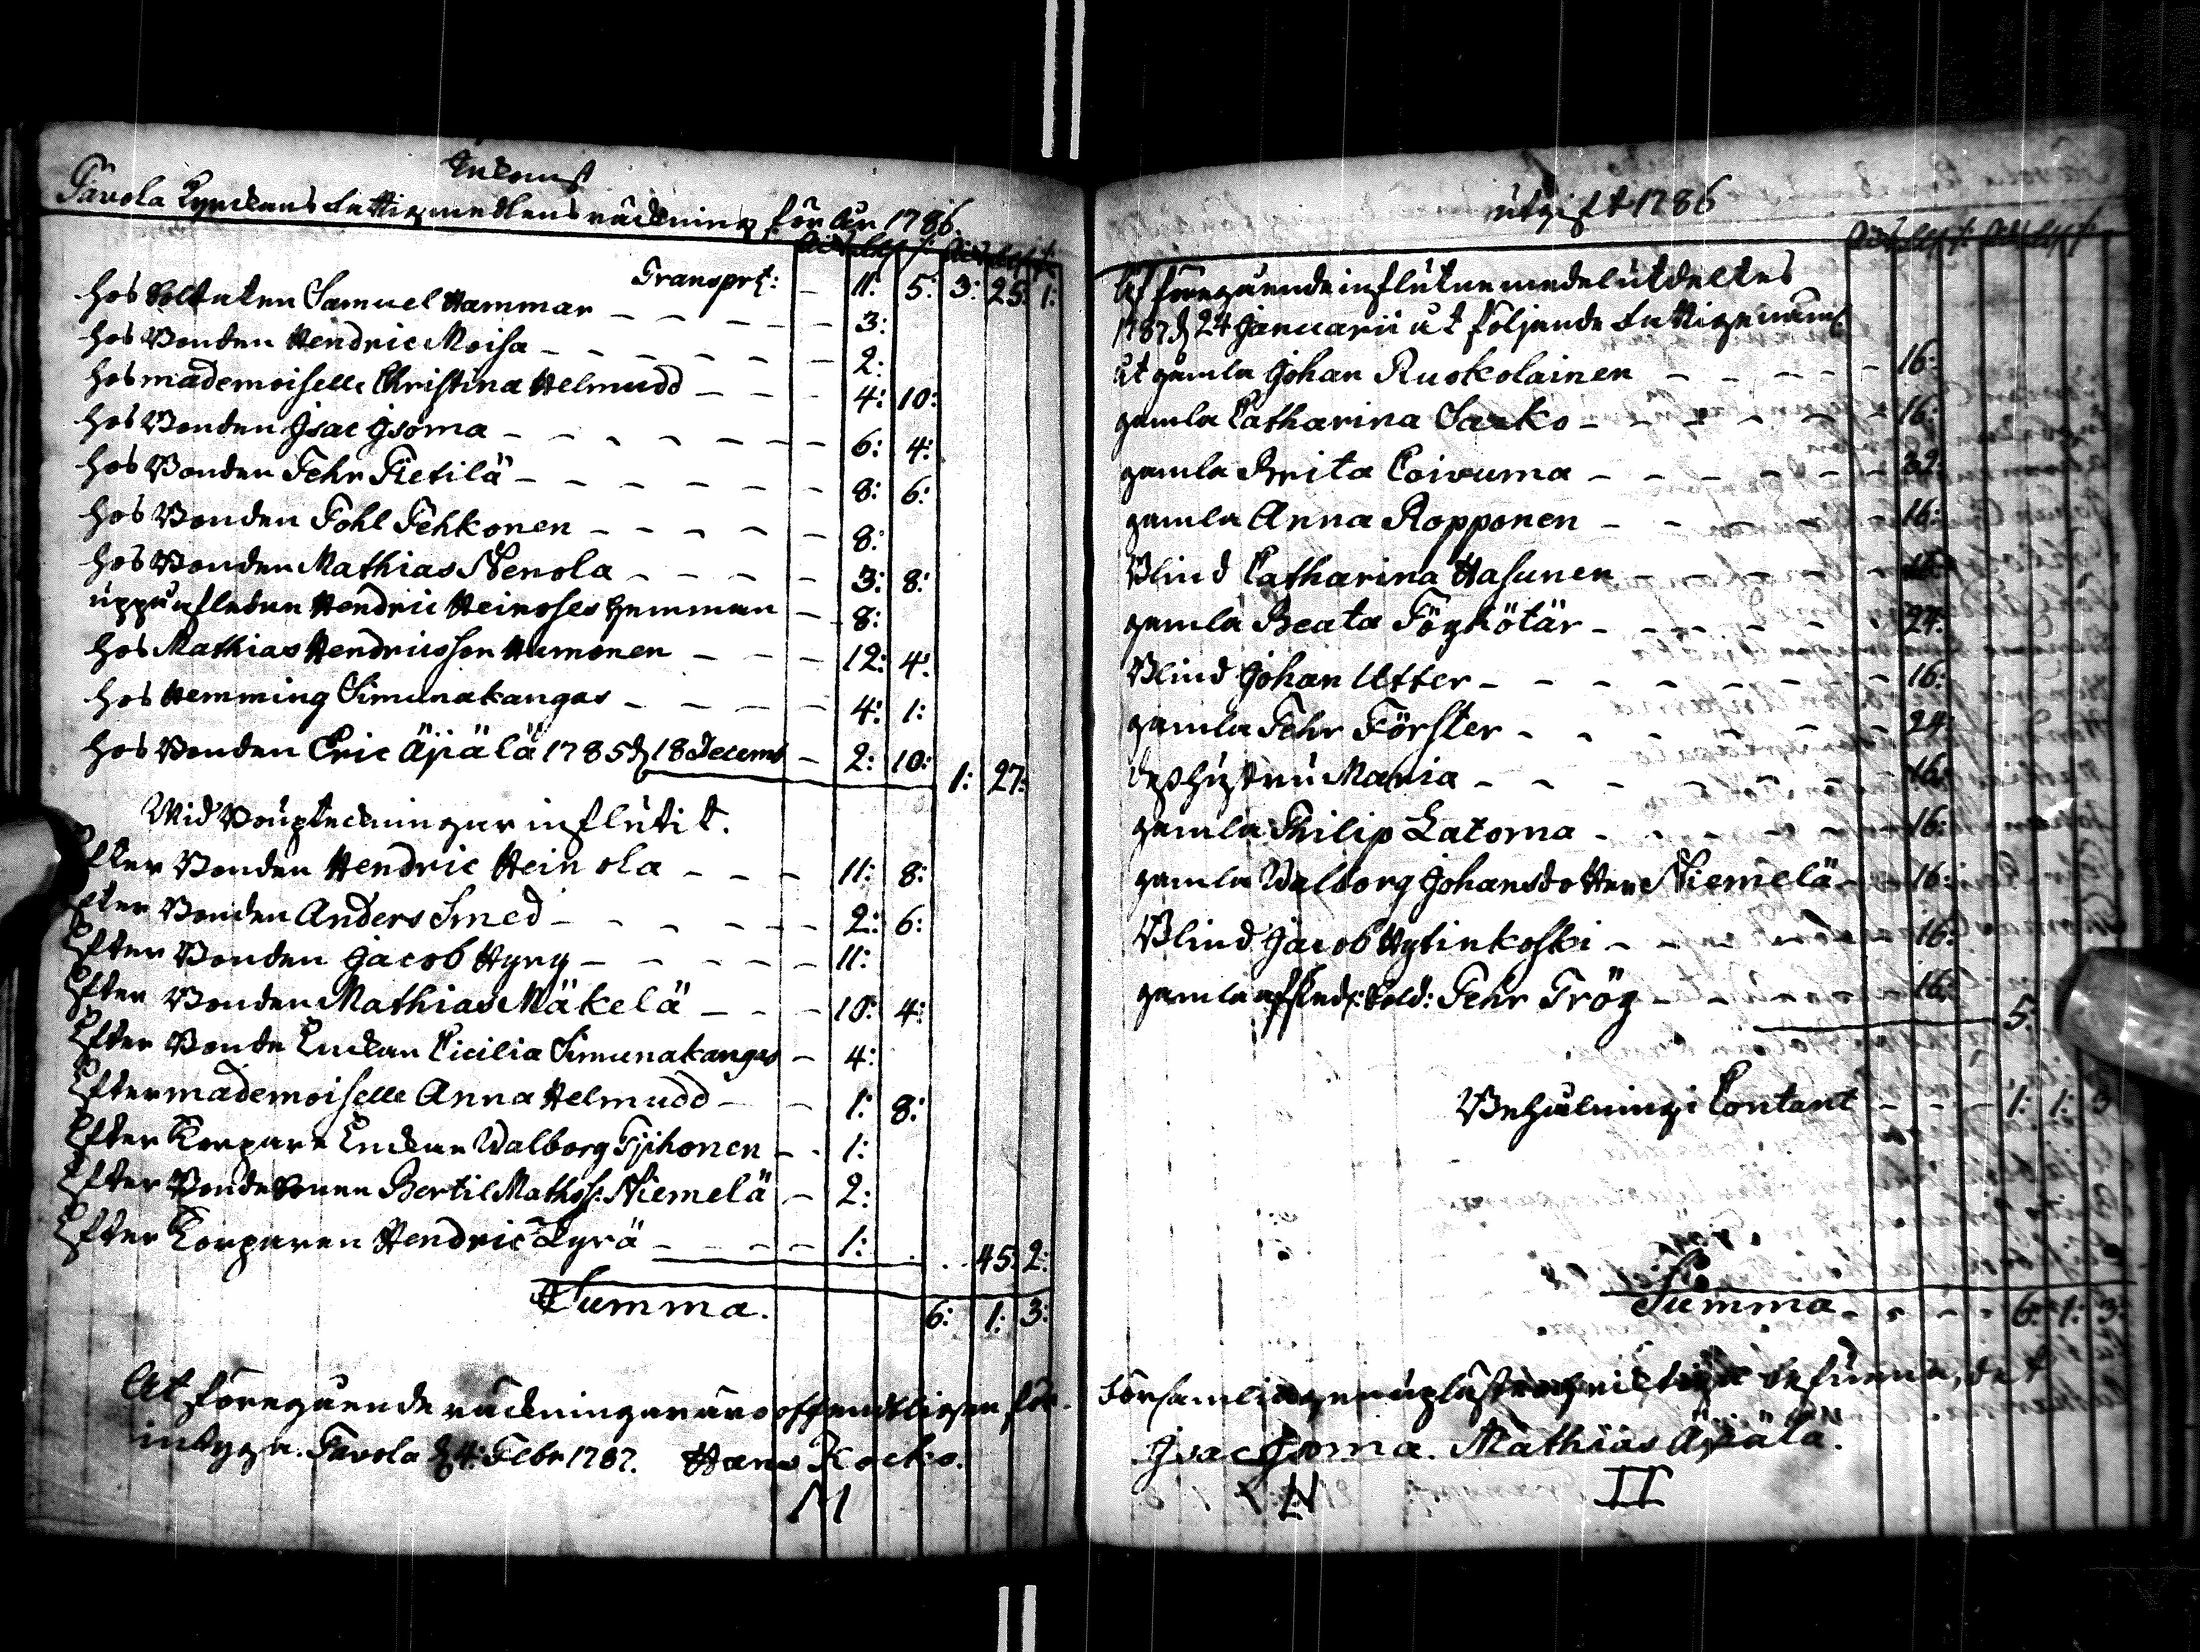 Inkomst
Pavola Kyrckans Fattigmedlens räckning för åhr 1786.
Transprt: – 11: 5: 3: 25: 1:
hos Soltaten Samuel Hammar – – – – – 3:
hos Bonden Hendric Moisa – – – – – – 2:
hos mademoiselle Christina Helmudd – – – 4: 10:
hos Bonden Isac Isoma – – – – – – – 6: 4:
hos Bonden Pehr Pietilä – – – – – – – 8: 6:
hos Bonden Pohl Pehkonen – – – – – 8:
hos Bonden Mathias Nenola – – – – 3: 8:
uppå afledne Hendric Heinoles hemman – 8:
hos Mathias Hendricsson Humonen – – – 12: 4:
hos Hemming Simunakangas – – – – – 4: 1:
hos Bonden Eric Äijälä 1785 d 18 Decemb – 2: 10: 1: 27:
Wid Bouptekningar influtit.
Efter Bonden Hendric Heinola – – – 11: 8:
Efter Bonden Anders Smed – – – – – – 2: 6:
Efter Bonden Jacob Hyry – – – – – 11:
Efter Bonden Mathias Mäkelä – – – 10: 4:
Efter Bonde Enckan Cicilia Simunakangas – 4:
Efter mademoiselle Anna Helmudd – – 1: 8:
Efter Korpare Enckan Walborg Pjihonen – . 1:
Efter Bonde Sonen Bertil Mathss: Niemelä – 2:
Efter Korparen Hendric Kyrä – – – – 1: 45: 2:
Summa. 6: 1: 3:
At föregående räckningar äro offendtligen för
intygga. Pavola d 4: Febr 1787. Hans Kocko.
utgift 1786
Af föregående influtne medel utdeltes
1787 d 24 Januarii åt följande Fattige näml
åt gamla Johan Ruokolainen – – – – – 16:
gamla Catharina Sarko – – – – – – 16:
gamla Brita Coivuma – – – – – – 32:
gamla Anna Ropponen – – – – – 16:
Blind Catharina Hasunen – – – – – 16:
gamla Beata Föghötär – – – – – 24:
Blind Johan Utter – – – – – – – 16:
gamla Pehr Förster – – – – – 24:
dess hustru Maria – – – – – 16:
gamla Philip Latoma – – – – – – 16:
gamla Walborg Johansdotter Niemelä – – 16:
Blind Jacob Hytinkoski – – – – – – 16:
gamla afsked: Sold: Pehr Trög – – – – 16: 5:
Behålning i Contant – – – 1: 1: 3
Summa – – – – 6: 1: 3:
församlingen uplästa och richtiga befunna, det
Isac Isoma. Mathias Äijälä.
II